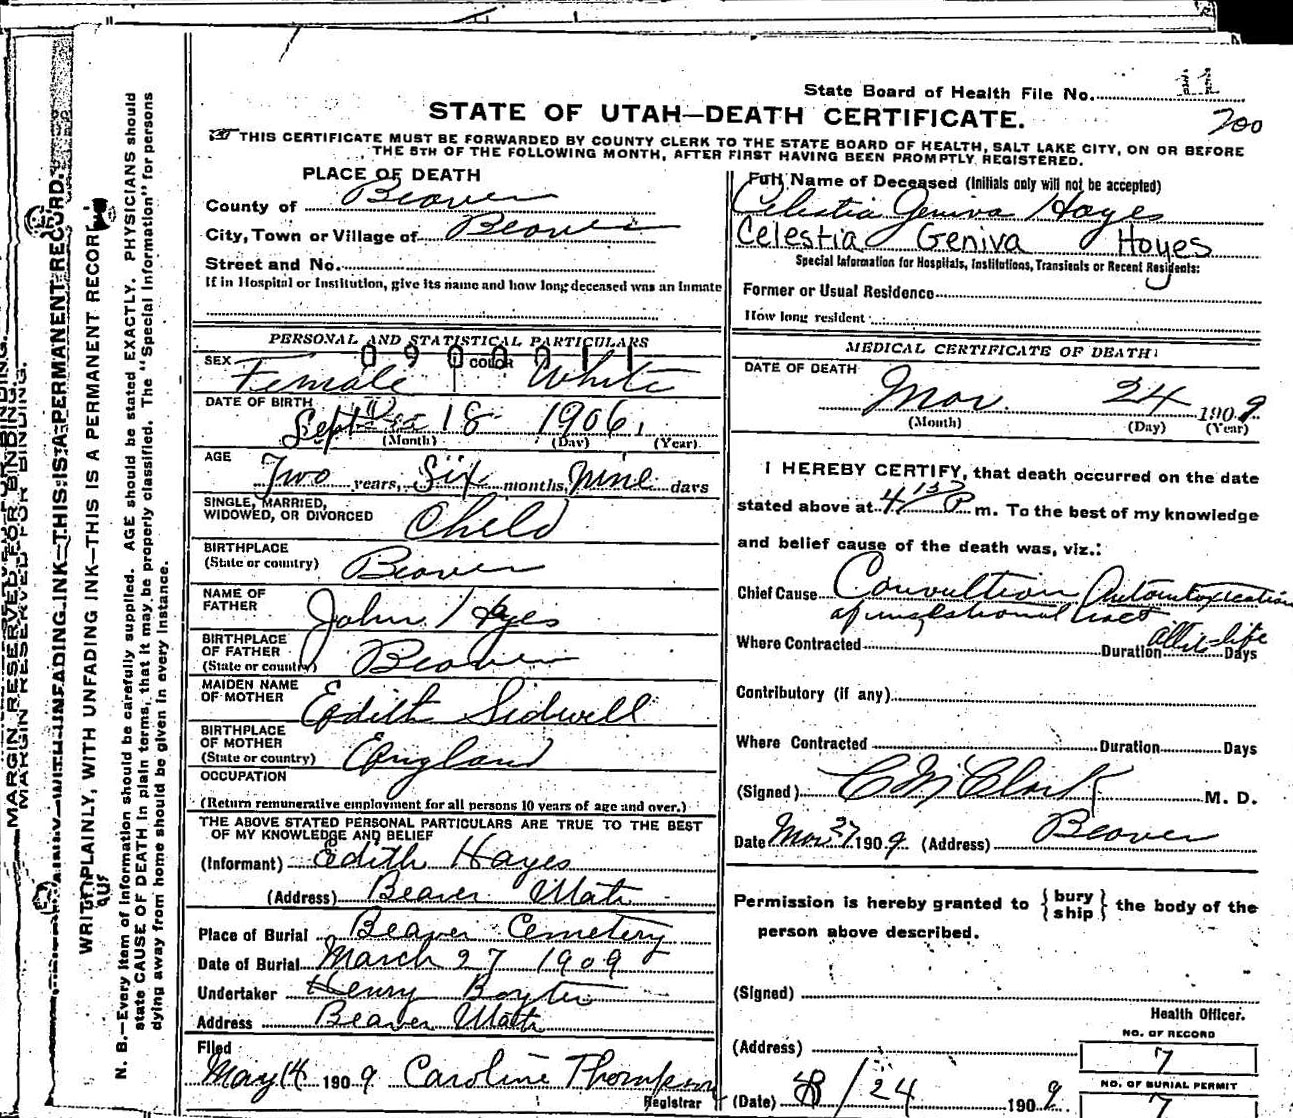 State Board of Health File No. 11
STATE OF UTAH—DEATH CERTIFICATE.
700
THIS CERTIFICATE MUST BE FORWARDED BY COUNTY CLERK TO THE STATE BOARD OF HEALTH, SALT LAKE CITY, ON OR BEFORE
THE 5TH OF THE FOLLOWING MONTH, AFTER FIRST HAVING BEEN PROMPTLY REGISTERED.
PLACE OF DEATH
County of Beaver
City, Town or Village of Beaver
Street and No.
If in Hospital or Institution, give its name and how long deceased was an Inmate
PERSONAL AND STATISTICAL PARTICULARS
SEX Female COLOR White
DATE OF BIRTH
Sept 18 1906,
(Month) (Day) (Year)
AGE
Two years, Six months, Nine days
SINGLE, MARRIED,
WIDOWED, OR DIVORCED Child
BIRTHPLACE
(State or country) Beaver
NAME OF
FATHER John Hayes
BIRTHPLACE
OF FATHER
(State or country) Beaver
MAIDEN NAME
OF MOTHER Edith Sidwell
BIRTHPLACE
OF MOTHER
(State or country) England
OCCUPATION
(Return remunerative employment for all persons 10 years of age and over.)
THE ABOVE STATED PERSONAL PARTICULARS ARE TRUE TO THE BEST
OF MY KNOWLEDGE AND BELIEF
(Informant) Edith Hayes
(Address) Beaver Utah
Place of Burial Beaver Cemetery
Date of Burial March 27 1909
Undertaker Henry Boyter
Address Beaver Utah
Filed
May 14 1909 Caroline Thompson
Registrar
Full Name of Deceased (Initials only will not be accepted)
Celestia Geniva Hayes
Celestia Geniva Hoyes
Special Information for Hospitals, Institutions, Transients or Recent Residents:
Former or Usual Residence
How long resident
MEDICAL CERTIFICATE OF DEATH
DATE OF DEATH
Mar. 24 1909
(Month) (Day) (Year)
I HEREBY CERTIFY, that death occurred on the date
stated above at 4 15 P m. To the best of my knowledge
and belief cause of the death was, viz.:
Chief Cause Convultion Autointoxication
of
Where Contracted Duration Days
Contributory (if any)
Where Contracted Duration Days
(Signed) C M Clark M. D.
Date Mar 27 1909 (Address) Beaver
Permission is hereby granted to { bury
ship } the body of the
person above described.
(Signed)
Health Officer.
NO. OF RECORD
(Address) 7
NO. OF BURIAL PERMIT
(Date) 24 1909 7
MARGIN RESERVED FOR BINDING.
WRITE PLAINLY, WITH UNFADING INK—THIS IS A PERMANENT RECORD.
N. B.—Every item of information should be carefully supplied. AGE should be stated EXACTLY. PHYSICIANS should
state CAUSE OF DEATH in plain terms, that it may be properly classified. The "Special Information" for persons
dying away from home should be given in every instance.